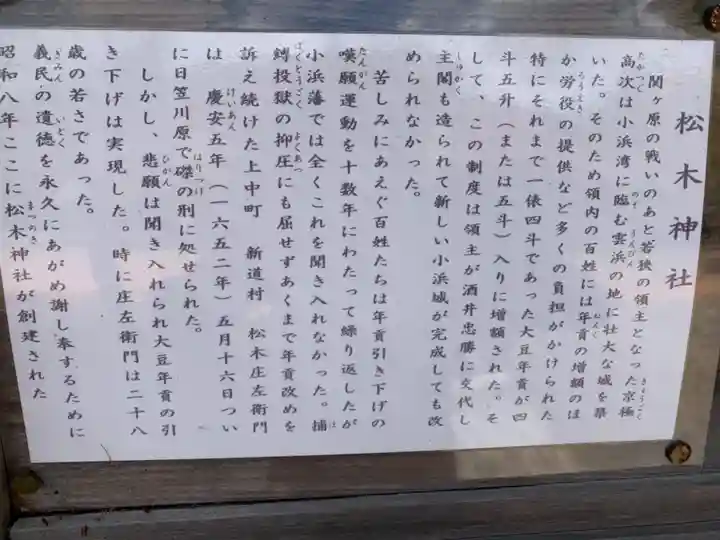 松木神社
関ヶ原の戦いのあと若狭の領主となった京極
高次は小浜湾に臨む雲浜の地に壮大な城を築
いた。そのため領内の百姓には年貢の増額のほ
か労役の提供など多くの負担がかけられた
特にそれまで一俵四斗であった大豆年貢が四
斗五升(または五斗)入りに増額された。そ
して、この制度は領主が酒井忠勝に交代し
主閣も造られて新しい小浜城が完成しても改
められなかった。
苦しみにあえぐ百姓たちは年貢引き下げの
嘆願運動を十数年にわたって繰り返したが
小浜藩では全くこれを聞き入れなかった。捕
縛投獄の抑圧にも屈せずあくまで年貢改めを
訴え続けた上中町 新道村 松木庄左衛門
は 慶安五年(一六五二年)五月十六日つい
に日笠川原で磔の刑に処せられた。
しかし、悲願は聞き入れられ大豆年貢の引
き下げは実現した。時に庄左衛門は二十八
歳の若さであった。
義民の遺徳を永久にあがめ謝し奉するために
昭和八年ここに松木神社が創建された